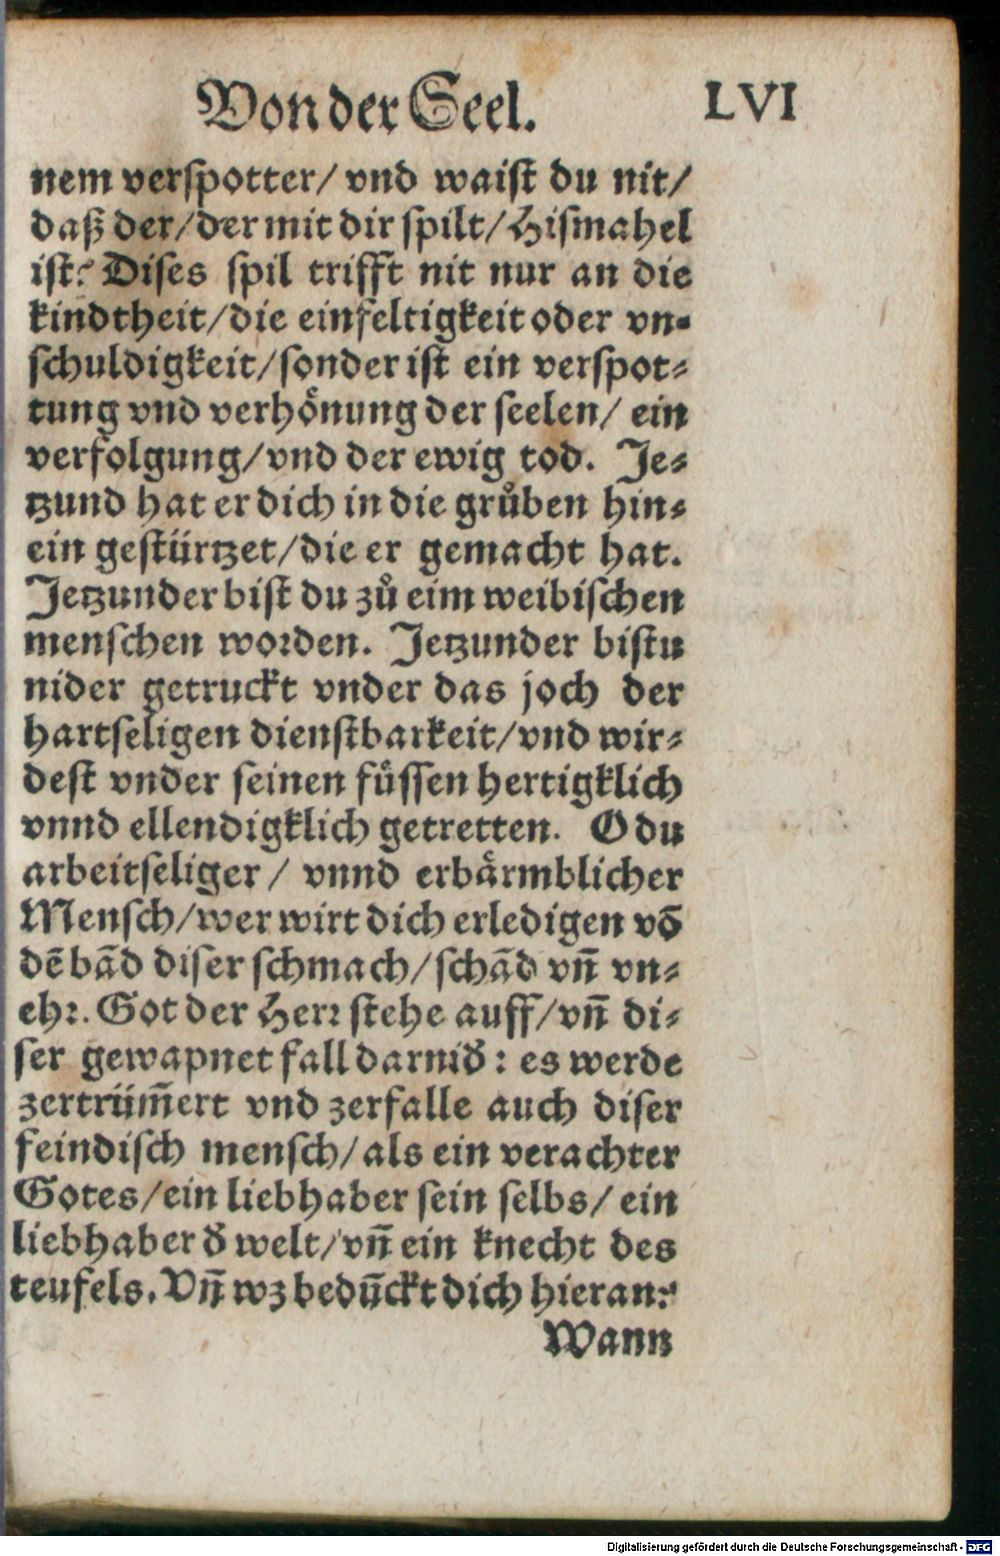 Von der Seel. LVI
nem verspotter/ vnd waist du nit/
daß der/der mit dir spilt/Hismahel
ist? Dises spil trifft nit nur an die
kindtheit/die einfeltigkeit oder vn-
schuldigkeit/sonder ist ein verspot-
tung vnd verhoͤnung der seelen/ ein
verfolgung/vnd der ewig tod. Je-
tzund hat er dich in die gruͦben hin-
ein gestürtzet/die er gemacht hat.
Jetzunder bist du zuͦ eim weibischen
menschen worden. Jetzunder bistu
nider getruckt vnder das joch der
hartseligen dienstbarkeit/vnd wir-
dest vnder seinen fuͤssen hertigklich
vnnd ellendigklich getretten. O du
arbeitseliger/ vnnd erbaͤrmblicher
Mensch/wer wirt dich erledigen võ
dẽ bãd diser schmach/schãd vñ vn-
ehr. Got der Herr stehe auff/vñ di-
ser gewapnet fall darnid᷑: es werde
zertrüm̃ert vnd zerfalle auch diser
feindisch mensch/als ein verachter
Gotes/ein liebhaber sein selbs/ ein
liebhaber d᷑ welt/vñ ein knecht des
teufels. Vñ wz beduñckt dich hieran?
Wann
Digitalisierung gefördert durch die Deutsche Forschungsgemeinschaft - DFG